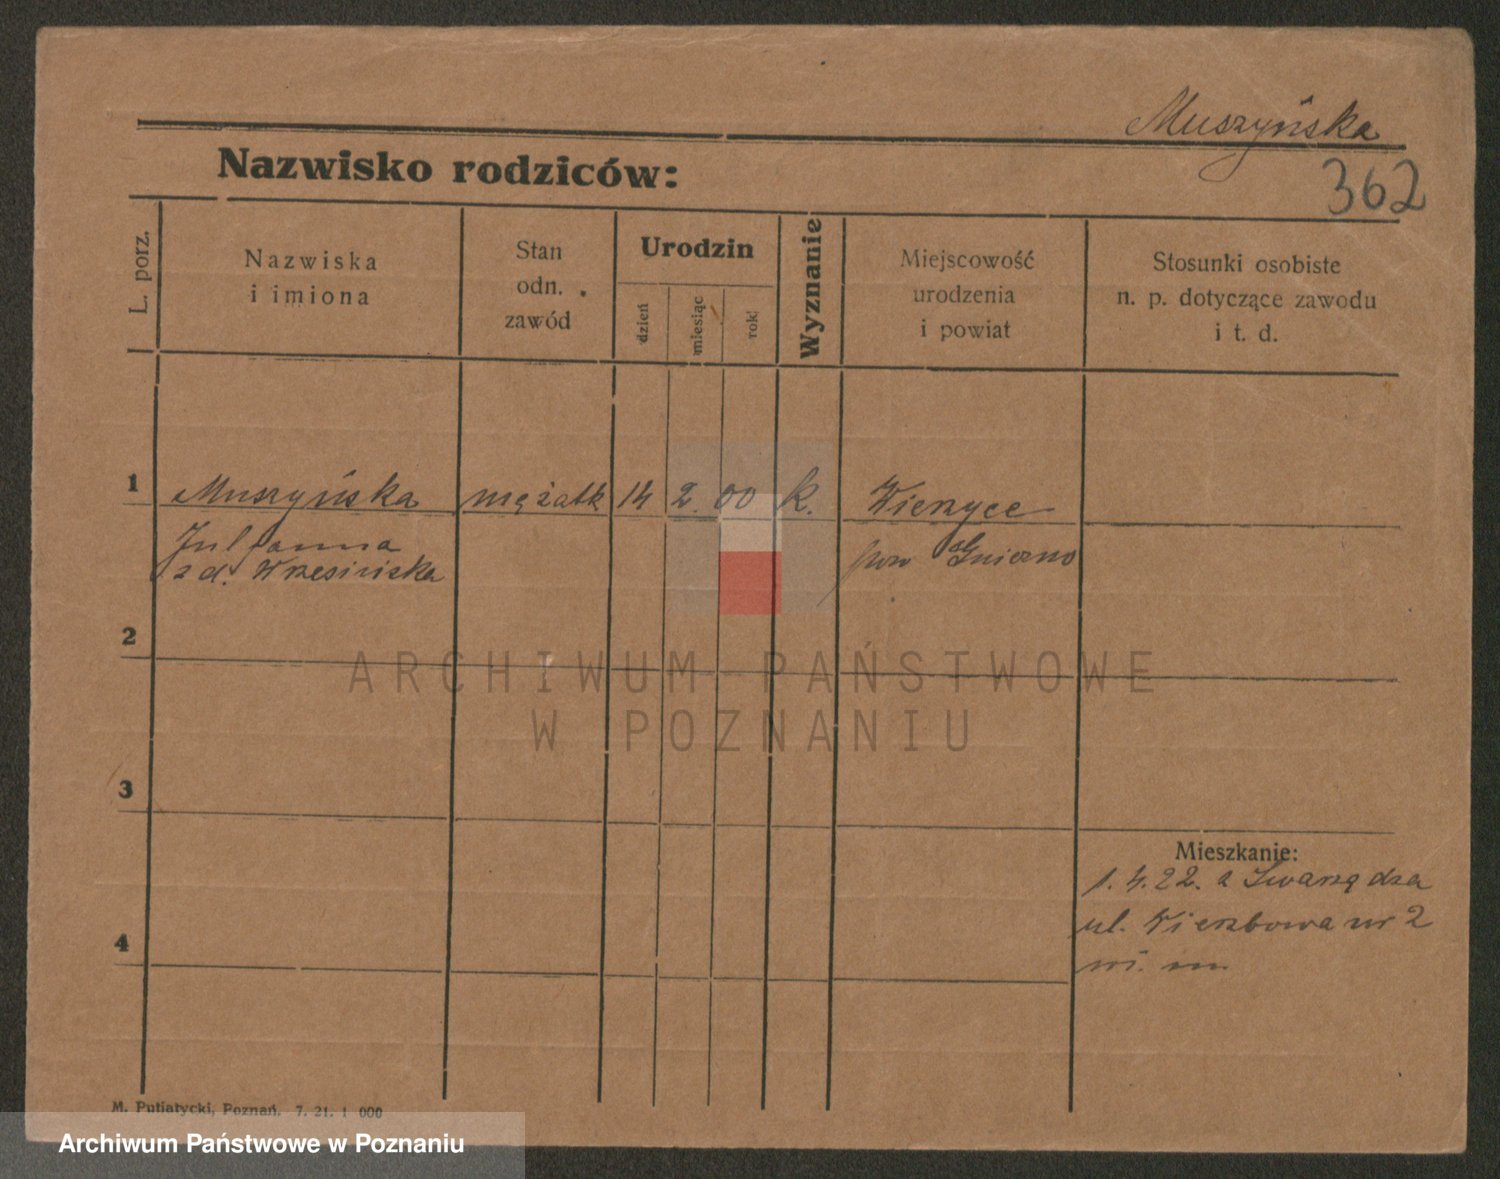 Muszyńska
362
Nazwisko rodziców:
L. porz.
Nazwiska
i imiona
Stan
odn.
zawód
Urodzin
dzień
miesiąc
rok
Wyznanie
Miejscowość
urodzenia
i powiat
Stosunki osobiste
n. p. dotyczące zawodu
i t. d.
1
Muszyńska mężatk 14 2. 00 k. Wierzyce
Julianna pow Gniezno
zd. Wrzesińska
2
ARCHIWUM PAŃSTWOWE
W POZNANIU
3
Mieszkanie:
1.4.22. z Swarzędza
ul. Wierzbowa nr 2
4
M. Putiatycki, Poznań. 7. 21. 1 000
Archiwum Państwowe w Poznaniu